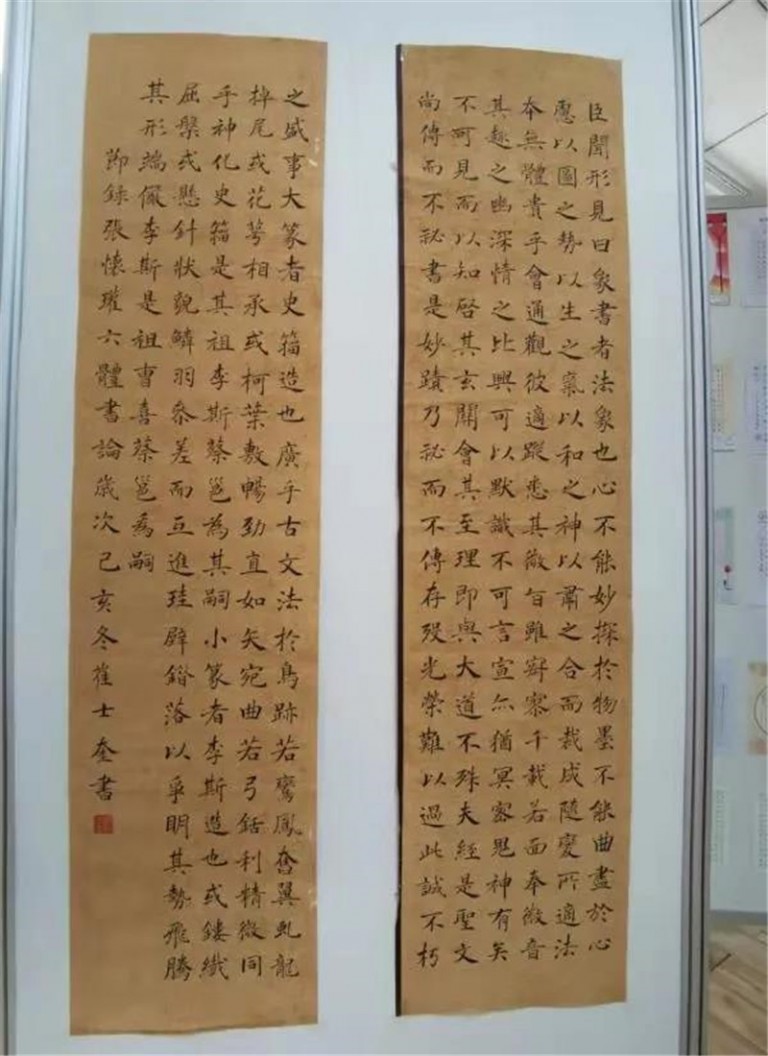 臣聞形見曰象書者法象也心不能妙探於物墨不能曲盡於心
慮以圖之勢以生之氣以和之神以肅之合而裁成隨變所適法
夲無體貴乎會通觀彼適蹤悉其微旨雖寂寥千載若面奉徽音
其趣之幽深情之比興可以默識不可言宣亦猶冥密鬼神有矣
不可見而以知啓其玄關會其至理即與大道不殊夫經是聖文
尚傳而不祕書是妙蹟乃祕而不傳存歿光榮難以過此誠不朽
之盛事大篆者史籀造也廣乎古文法於鳥跡若鸞鳳奮翼虬龍
掉尾或花萼相承或柯葉敷暢勁直如矢宛曲若弓銛利精微同
乎神化史籀是其祖李斯蔡邕為其嗣小篆者李斯造也或鏤纖
屈槃或懸針狀貌鱗羽参差而互進珪璧錯落以爭明其勢飛騰
其形端儼李斯是祖曹喜蔡邕爲嗣
節録張懷瓘六體書論歲次己亥冬崔士奎書